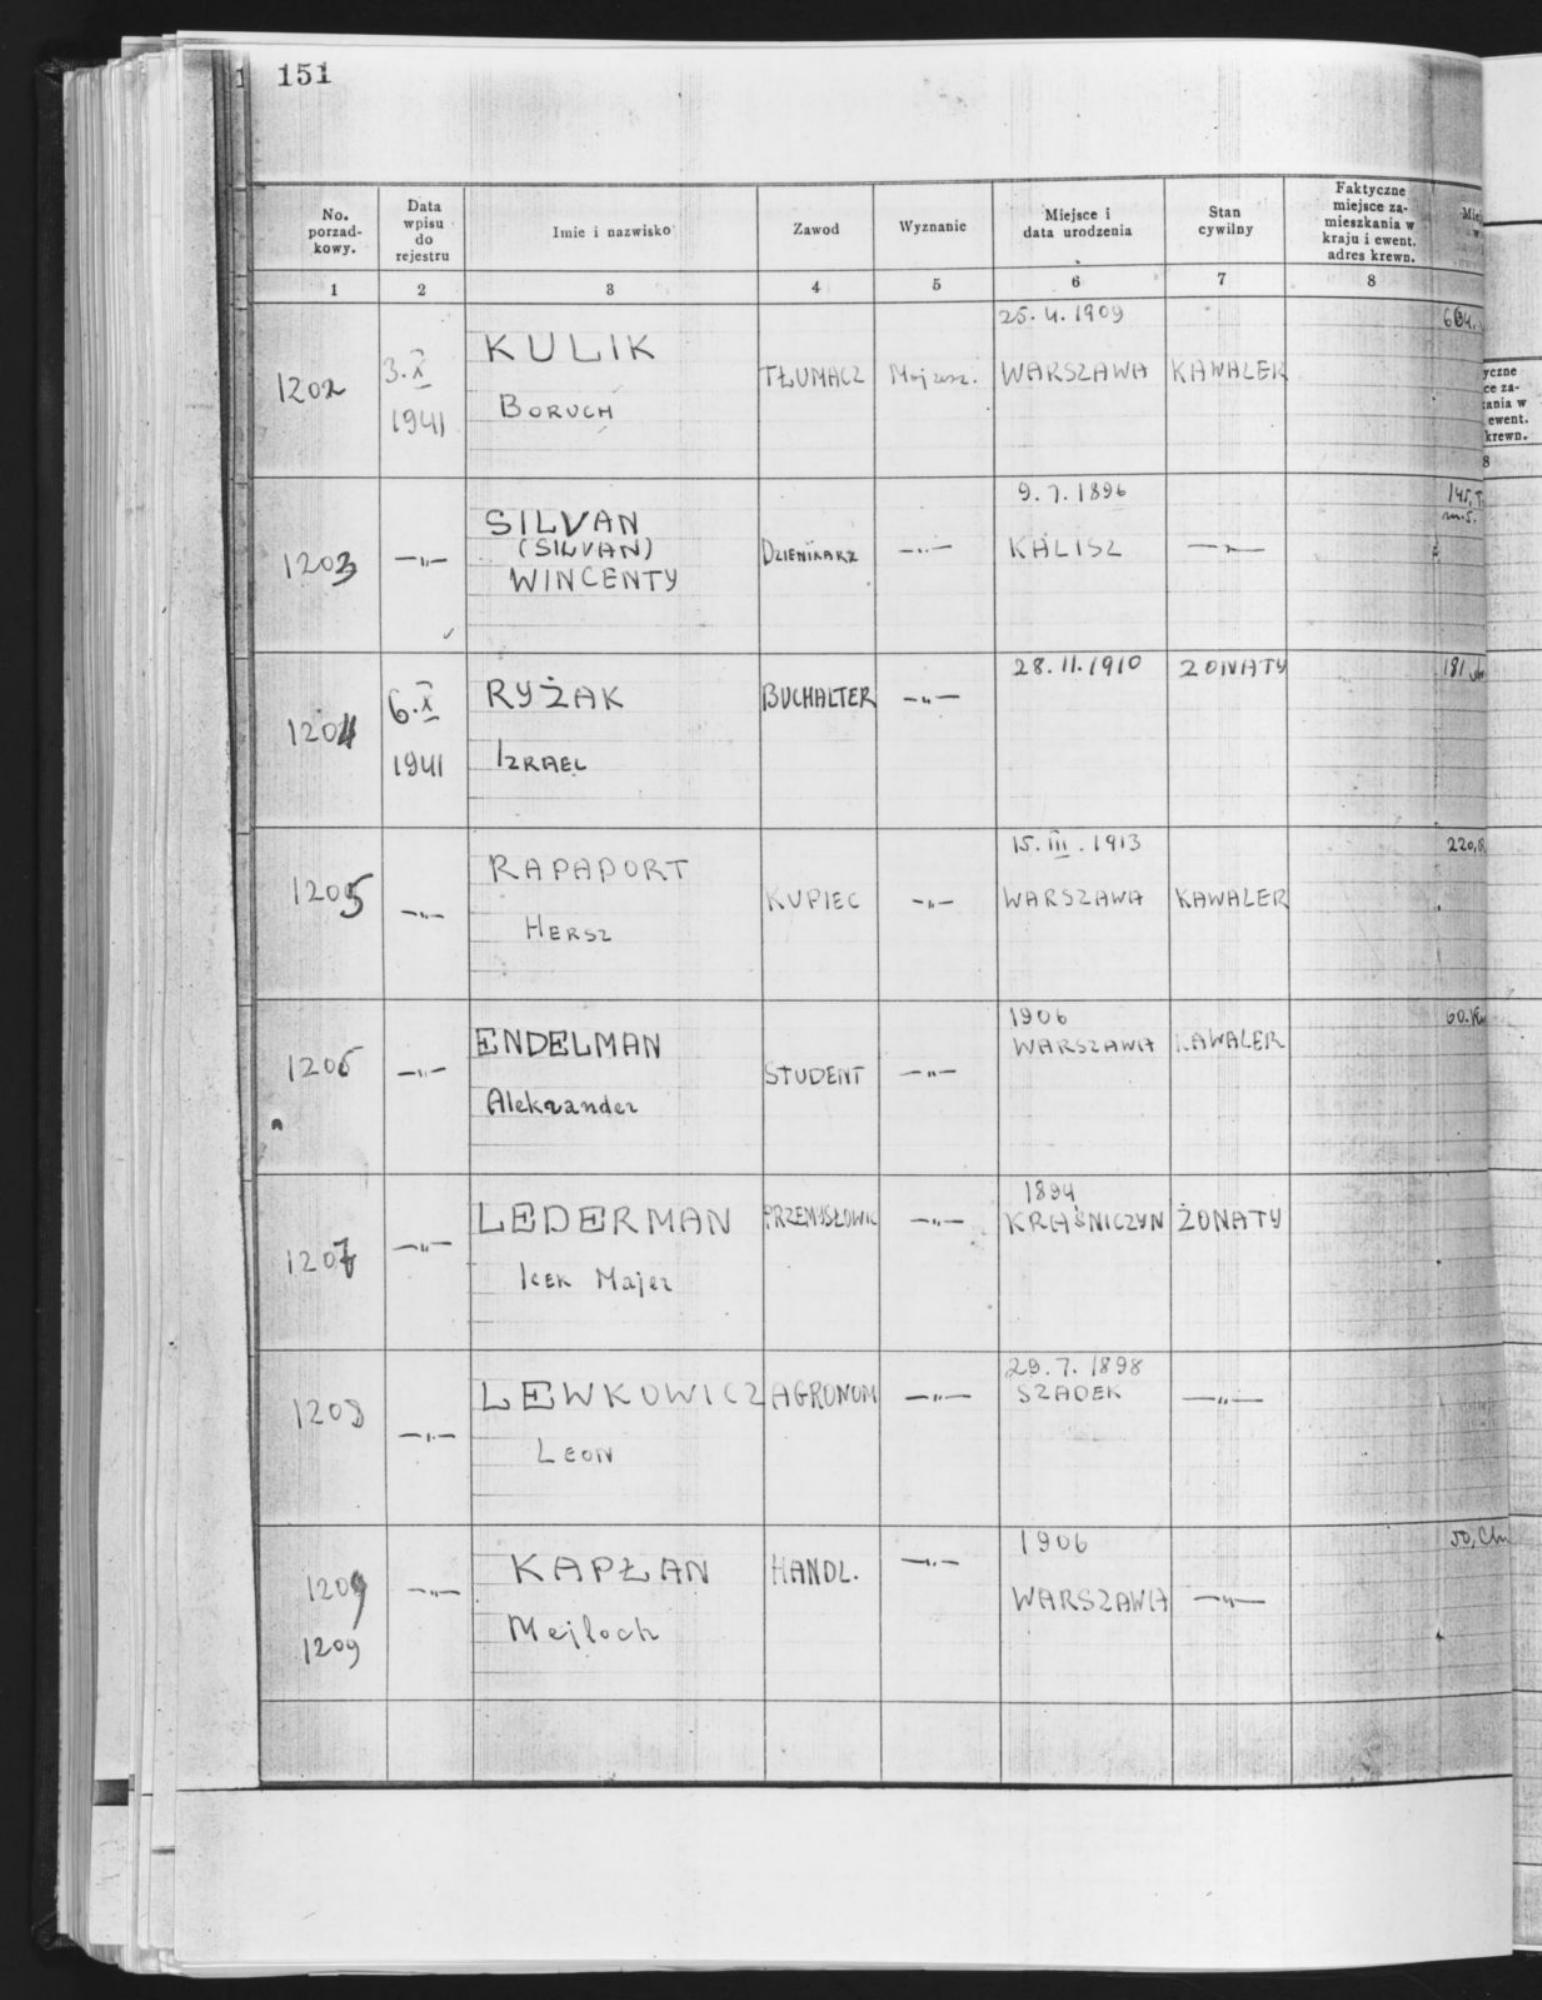 151
No.
porzad-
kowy.
Data
wpisu
do
rejestru
Imie i nazwisko
Zawod
Wyznanie
Miejsce i
data urodzenia
Stan
cywilny
Faktyczne
miejsce za-
mieszkania w
kraju i ewent.
adres krewn.
1 2 3 4 5 6 7 8
1202
3. X
1941
KULIK
BORUCH
TŁUMACZ
Mojżesz.
25. 4. 1909
WARSZAWA
KAWALER
1203
—"—
SILVAN
(SILVAN)
WINCENTY
DZIENIKARZ
—"—
9. 7. 1896
KALISZ
—"—
145, T.
m. 5.
1204
6. X
1941
RYŻAK
IZRAEL
BUCHALTER
—"—
28. 11. 1910
ZONATY
181
1205
—"—
RAPAPORT
HERSZ
KUPIEC
—"—
15. III. 1913
WARSZAWA
KAWALER
220,
1206
—"—
ENDELMAN
Alekzander
STUDENT
—"—
1906
WARSZAWA
KAWALER
60.
1207
—"—
LEDERMAN
ICEK Majer
PRZEMYSŁOWIC
—"—
1894
KRAŚNICZYN
ŻONATY
1208
—"—
LEWKOWICZ
LEON
AGRONOM
—"—
29. 7. 1898
SZADEK
—"—
1209
1209
—"—
KAPŁAN
Mejloch
HANDL.
—"—
1906
WARSZAWA
—"—
50, Ch
yczne
ce za-
ania w
ewent.
krewn.
8